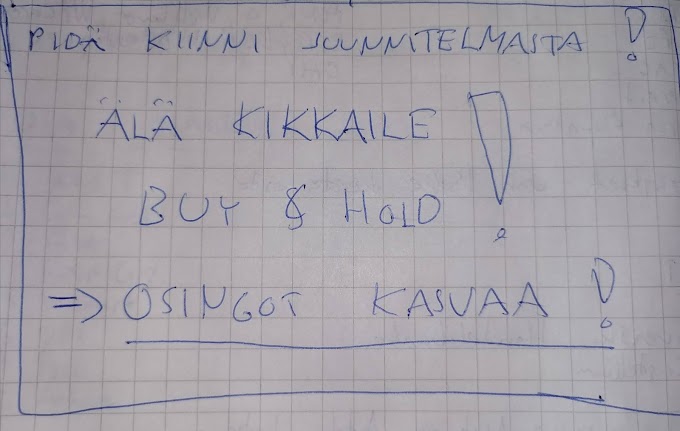 PIDÄ KIINNI SUUNNITELMASTA!
ÄLÄ KIKKAILE!
BUY & HOLD
=> OSINGOT KASVAA!